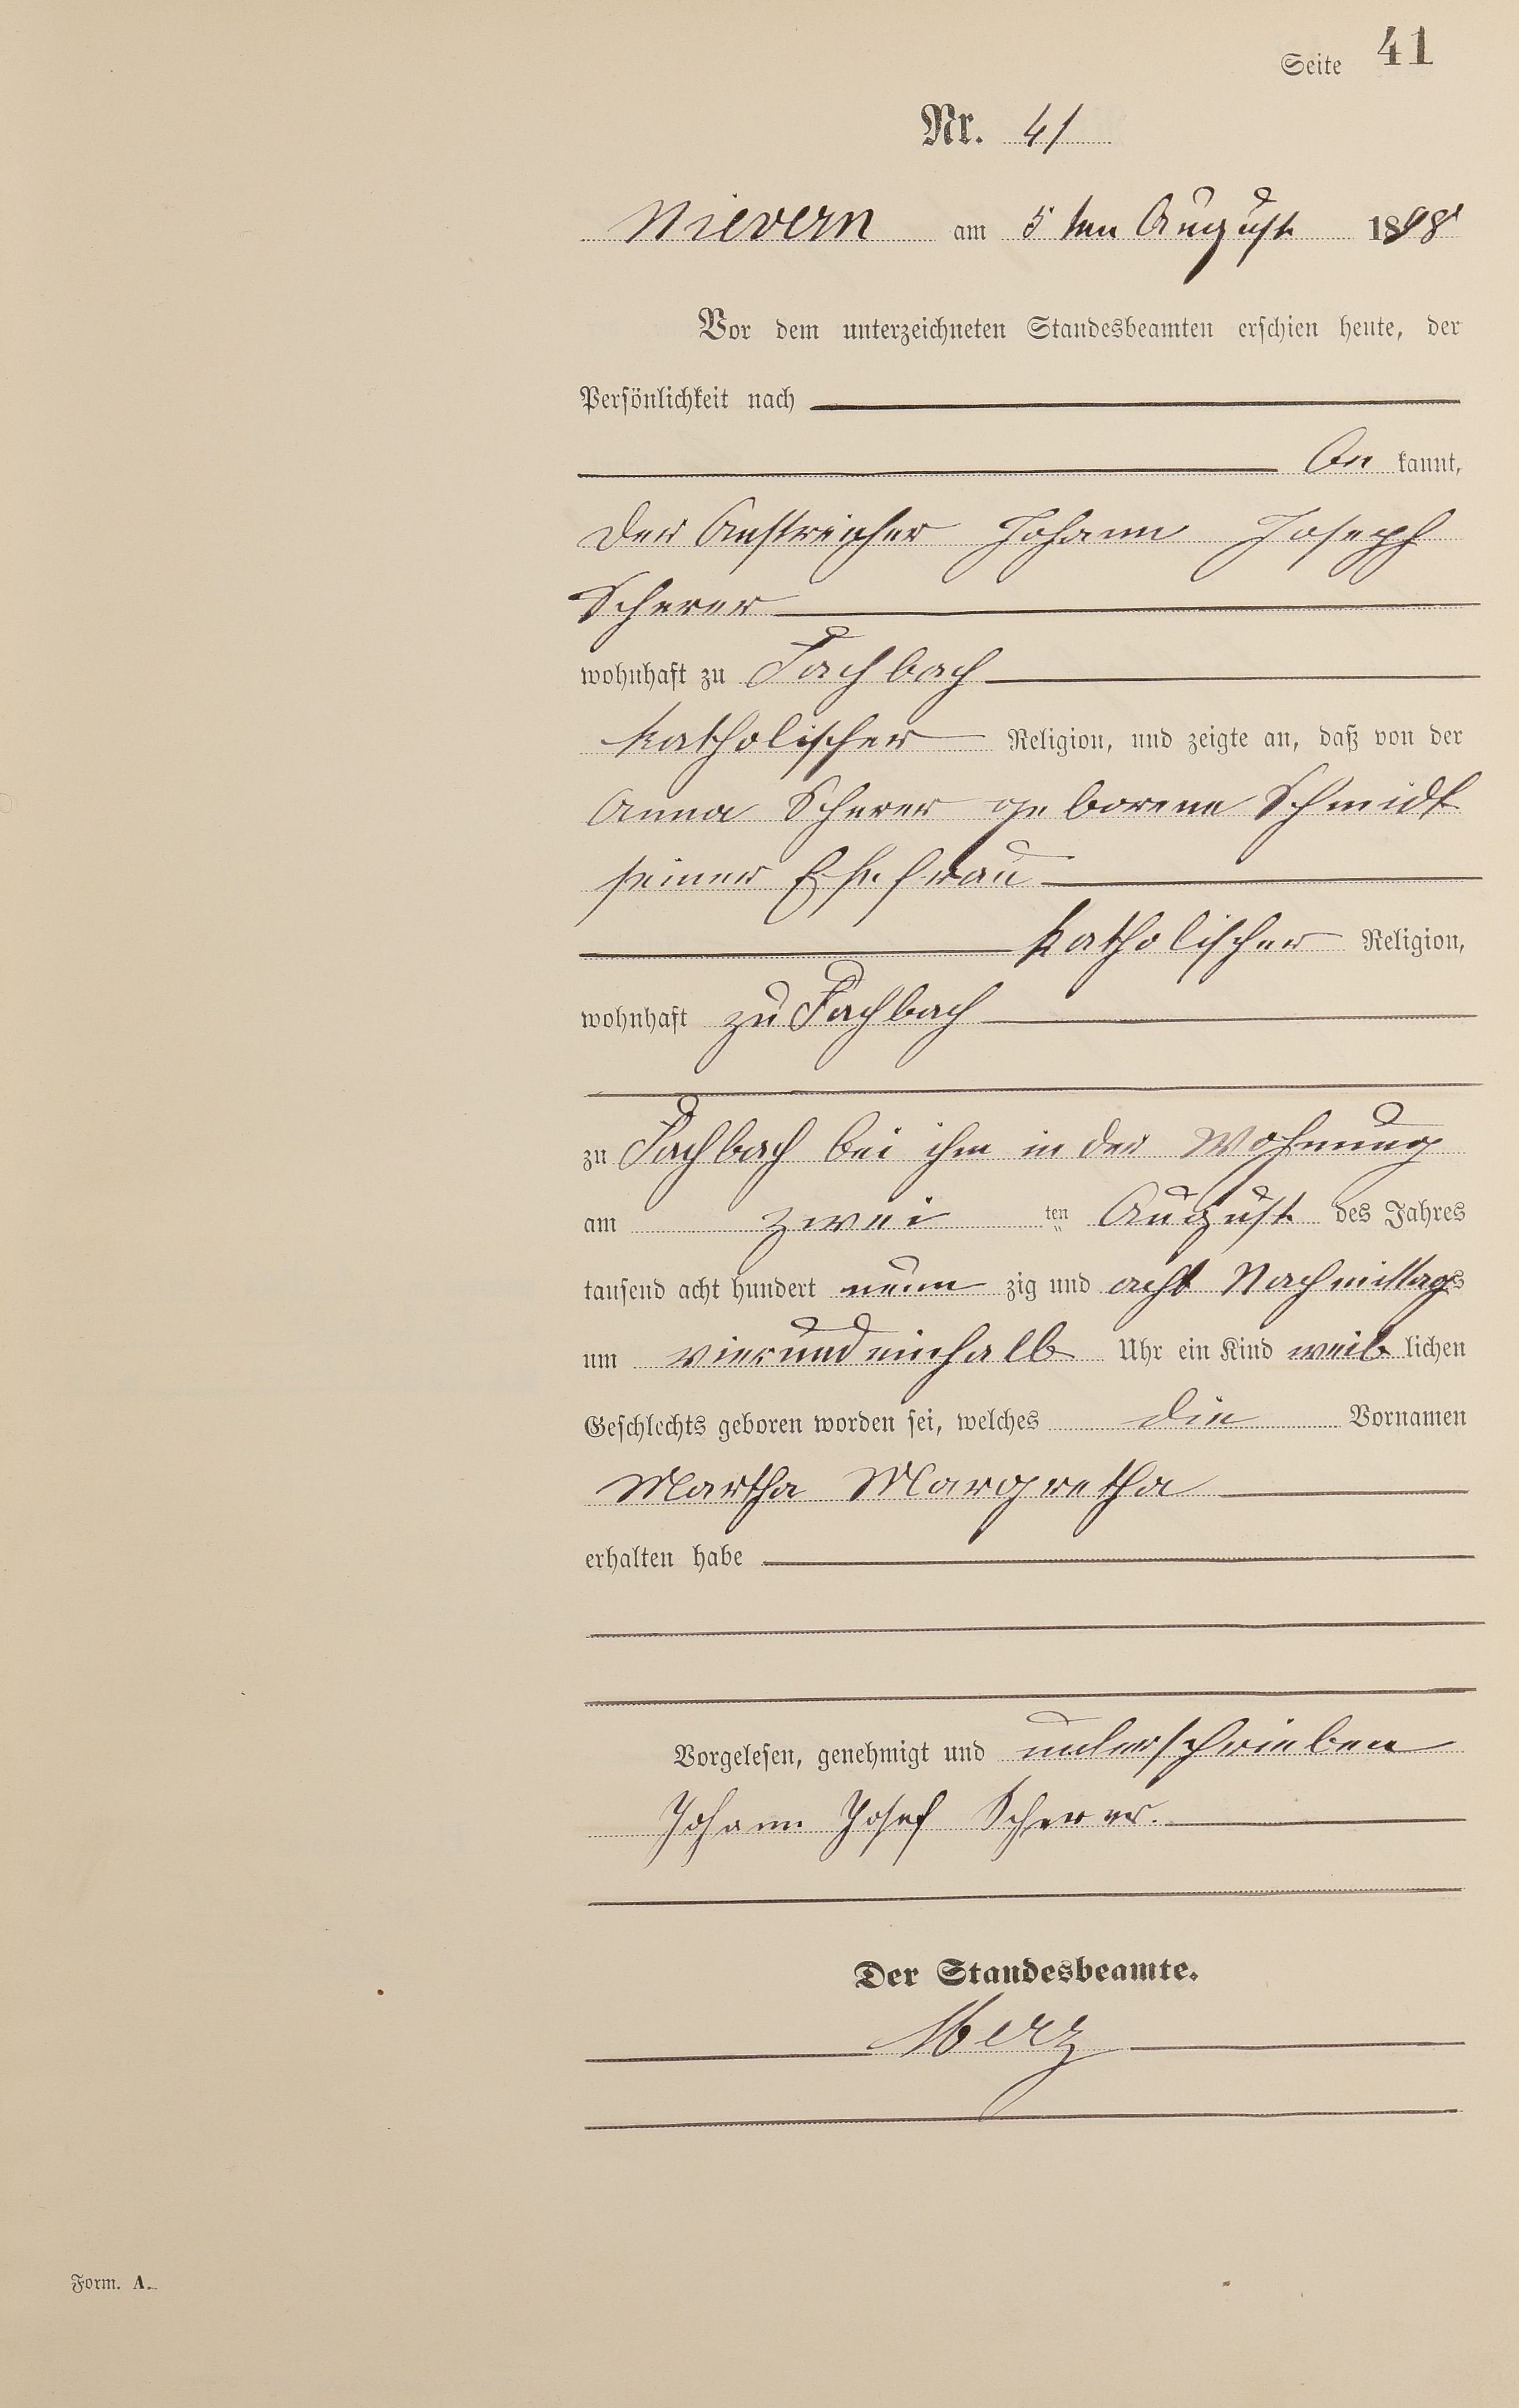 Seite 41
Nr. 41
Nievern am 5ten August 1898
Vor dem unterzeichneten Standesbeamten erschien heute, der
Persönlichkeit nach
be kannt,
der Anstreicher Johann Joseph
Scherer
wohnhaft zu Fachbach
katholischer Religion, und zeigte an, daß von der
Anna Scherer geborene Schmidt
seiner Ehefrau
katholischer Religion,
wohnhaft zu Fachbach
zu Fachbach bei ihm in der Wohnung
am zwei ten August des Jahres
tausend acht hundert neun zig und acht Nachmittags
um vierundeinhalb Uhr ein Kind weib lichen
Geschlechts geboren worden sei, welches die Vornamen
Martha Margretha
erhalten habe
Vorgelesen, genehmigt und unterschrieben
Johann Josef Scherer.
Der Standesbeamte.
Merz
Form. A.